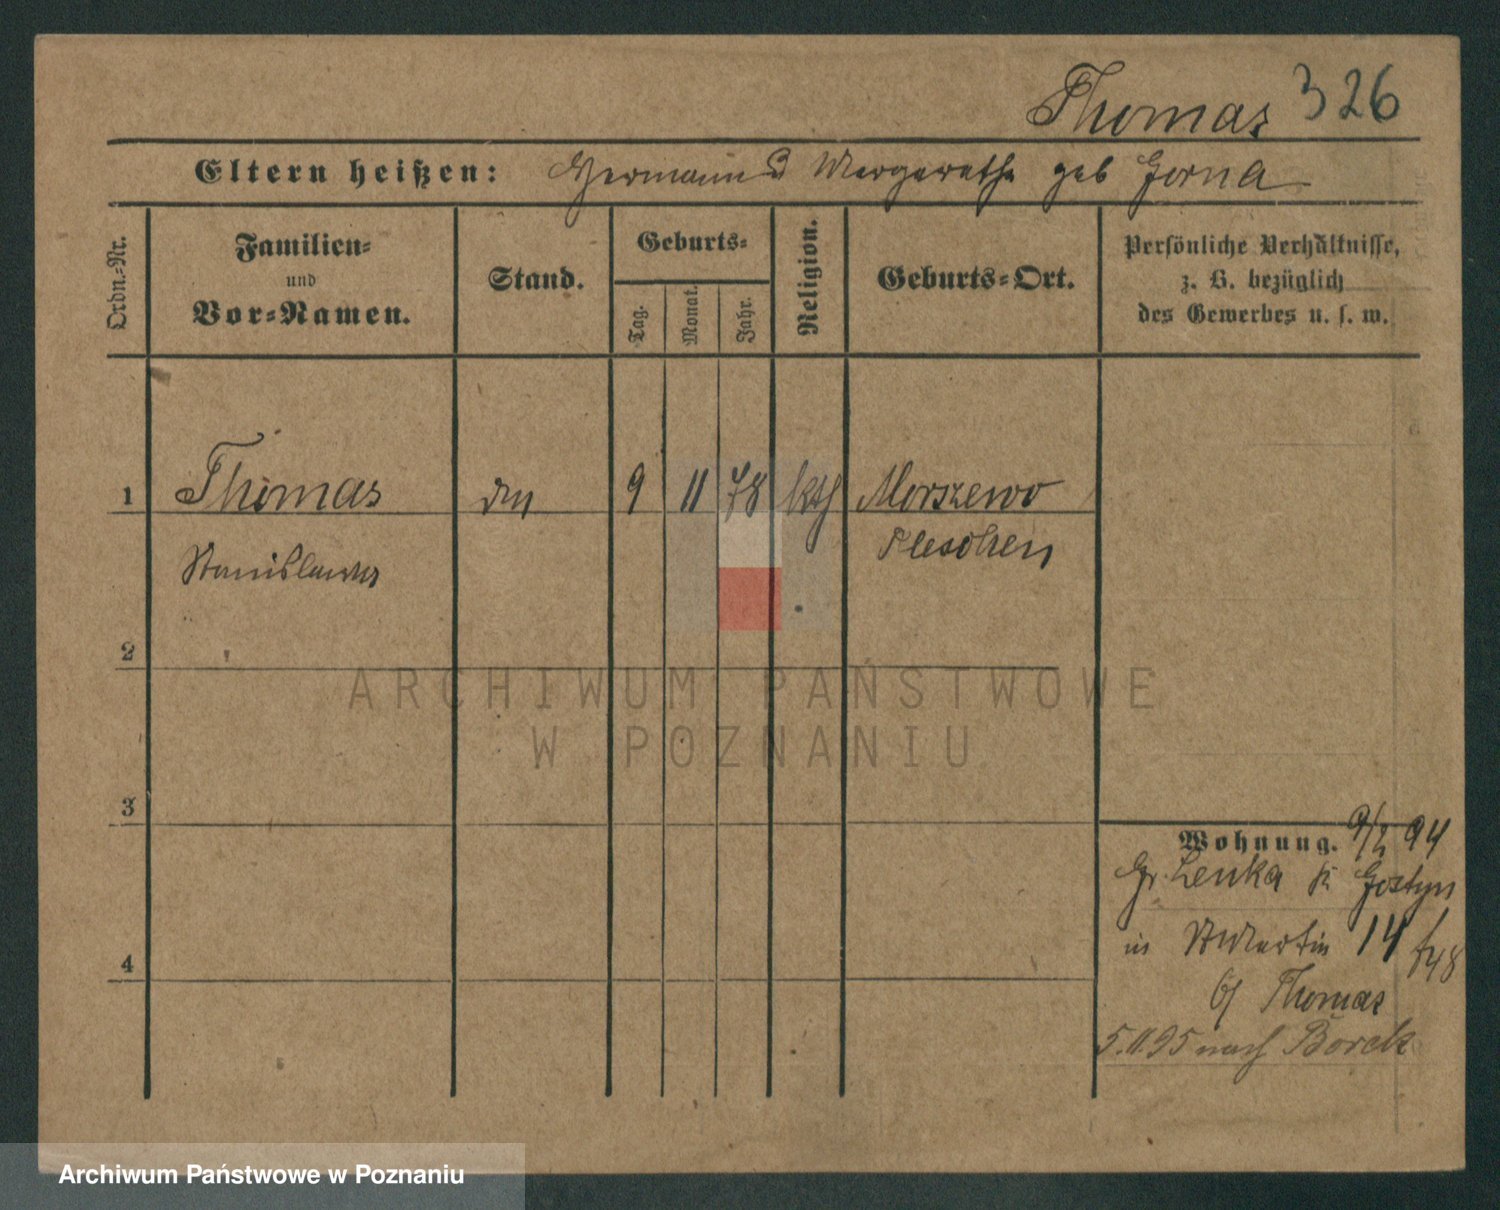 Thomas 326
Eltern heißen: Hermann u Margarethe geb Gorna
Ordn.-Nr.
Familien-
und
Vor-Namen.
Stand.
Geburts-
Tag.
Monat.
Jahr.
Religion.
Geburts-Ort.
Persönliche Verhältnisse,
z. B. bezüglich
des Gewerbes u. s. w.
1 Thomas 9 11 78 kth Morszewo
Stanislawa Pleschen
2
3
4
Wohnung. 9/2 94
Gr. Lenka Kr Gostyn
in St Martin 14
b/ Thomas
5.11.95 nach Borek
ARCHIWUM PAŃSTWOWE
W POZNANIU
Archiwum Państwowe w Poznaniu